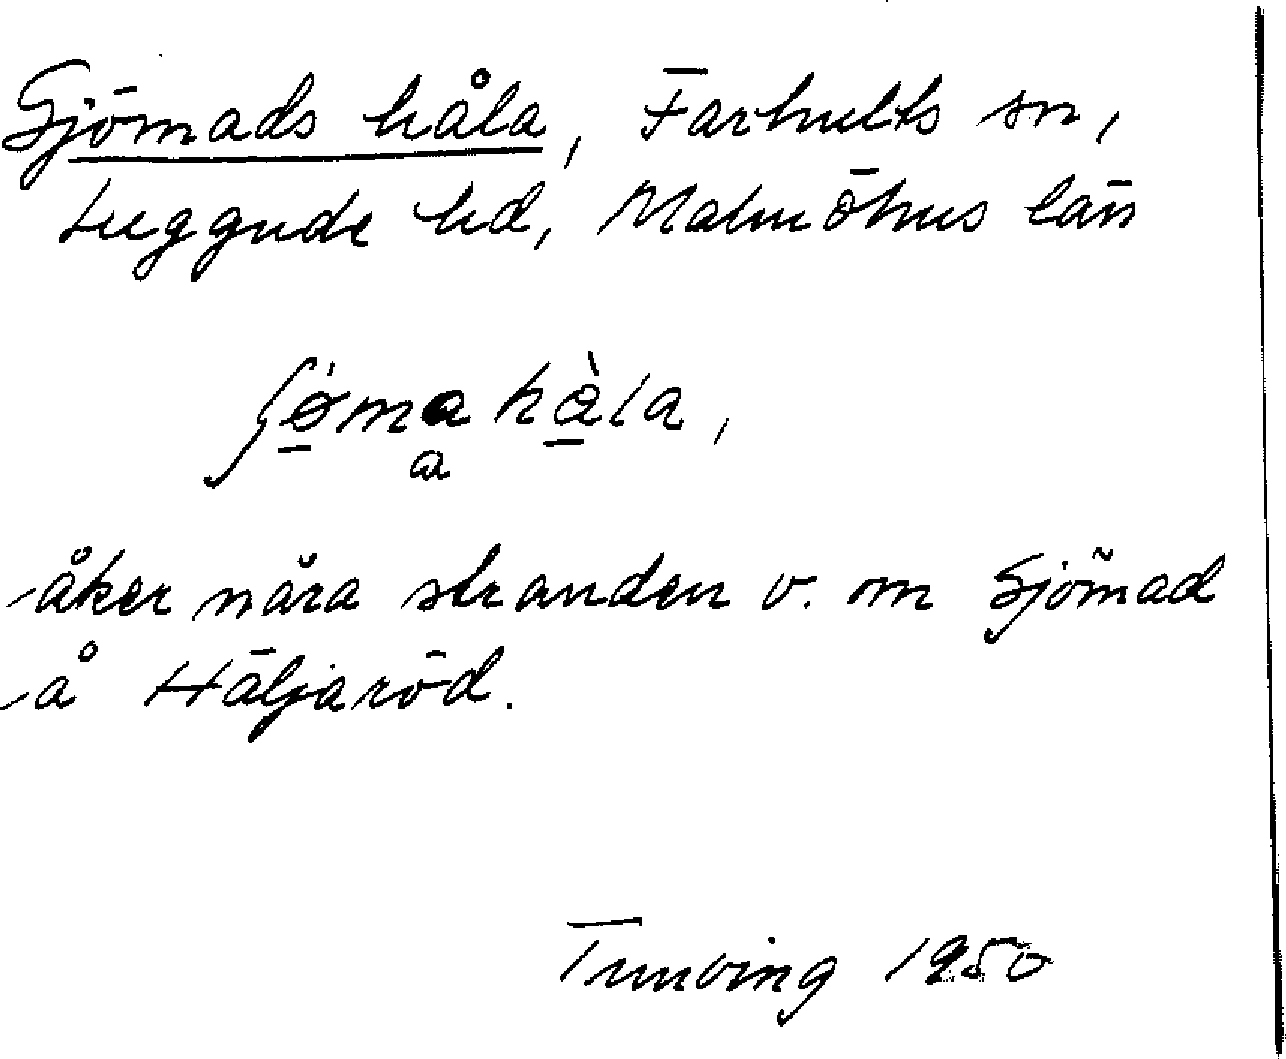 Sjömads håla, Farhults sn,
Luggude hd, Malmöhus län
ʃǿ̱mahà̱la,
a
åker nära stranden v. om Sjömad
å Häljaröd.
Tunving 1950